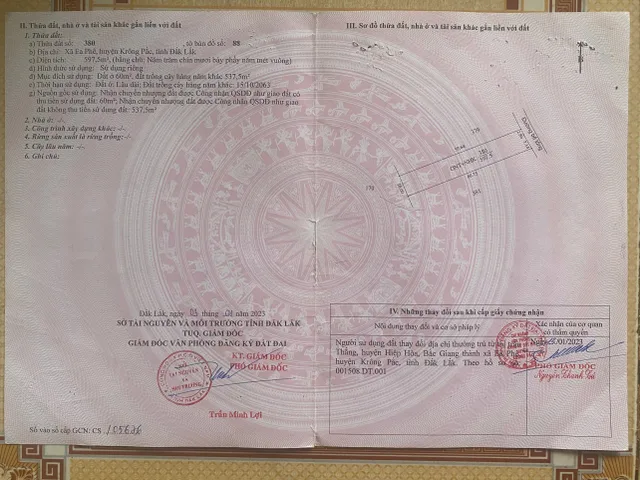 II. Thửa đất, nhà ở và tài sản khác gắn liền với đất
1. Thửa đất:
a) Thửa đất số: 380 , tờ bản đồ số: 88
b) Địa chỉ: Xã Ea Phê, huyện Krông Pắc, tỉnh Đắk Lắk
c) Diện tích: 597,5m², (bằng chữ: Năm trăm chín mươi bảy phẩy năm mét vuông)
d) Hình thức sử dụng: Sử dụng riêng
đ) Mục đích sử dụng: Đất ở 60m², đất trồng cây hàng năm khác 537,5m²
e) Thời hạn sử dụng: Đất ở: Lâu dài; Đất trồng cây hàng năm khác: 15/10/2063
g) Nguồn gốc sử dụng: Nhận chuyển nhượng đất được Công nhận QSDĐ như giao đất có
thu tiền sử dụng đất: 60m²; Nhận chuyển nhượng đất được Công nhận QSDĐ như giao
đất không thu tiền sử dụng đất: 537,5m²
2. Nhà ở: -/-
3. Công trình xây dựng khác: -/-
4. Rừng sản xuất là rừng trồng: -/-
5. Cây lâu năm: -/-
6. Ghi chú:
Đắk Lắk, ngày 03 tháng 01 năm 2023
SỞ TÀI NGUYÊN VÀ MÔI TRƯỜNG TỈNH ĐẮK LẮK
TUQ. GIÁM ĐỐC
GIÁM ĐỐC VĂN PHÒNG ĐĂNG KÝ ĐẤT ĐAI
KT. GIÁM ĐỐC
PHÓ GIÁM ĐỐC
TÀI NGUYÊN
VÀ
MÔI TRƯỜNG
Trần Minh Lợi
Số vào sổ cấp GCN: CS 105636
III. Sơ đồ thửa đất, nhà ở và tài sản khác gắn liền với đất
B
Đường bê tông
379
380
370
381
IV. Những thay đổi sau khi cấp giấy chứng nhận
Nội dung thay đổi và cơ sở pháp lý
Xác nhận của cơ quan
có thẩm quyền
Người sử dụng đất thay đổi địa chỉ thường trú từ
Thắng, huyện Hiệp Hòa, Bắc Giang thành xã Ea Phê,
huyện Krông Pắc, tỉnh Đắk Lắk. Theo hồ sơ
001508.DT.001
/01/2023
PHÓ GIÁM ĐỐC
Nguyễn Thanh